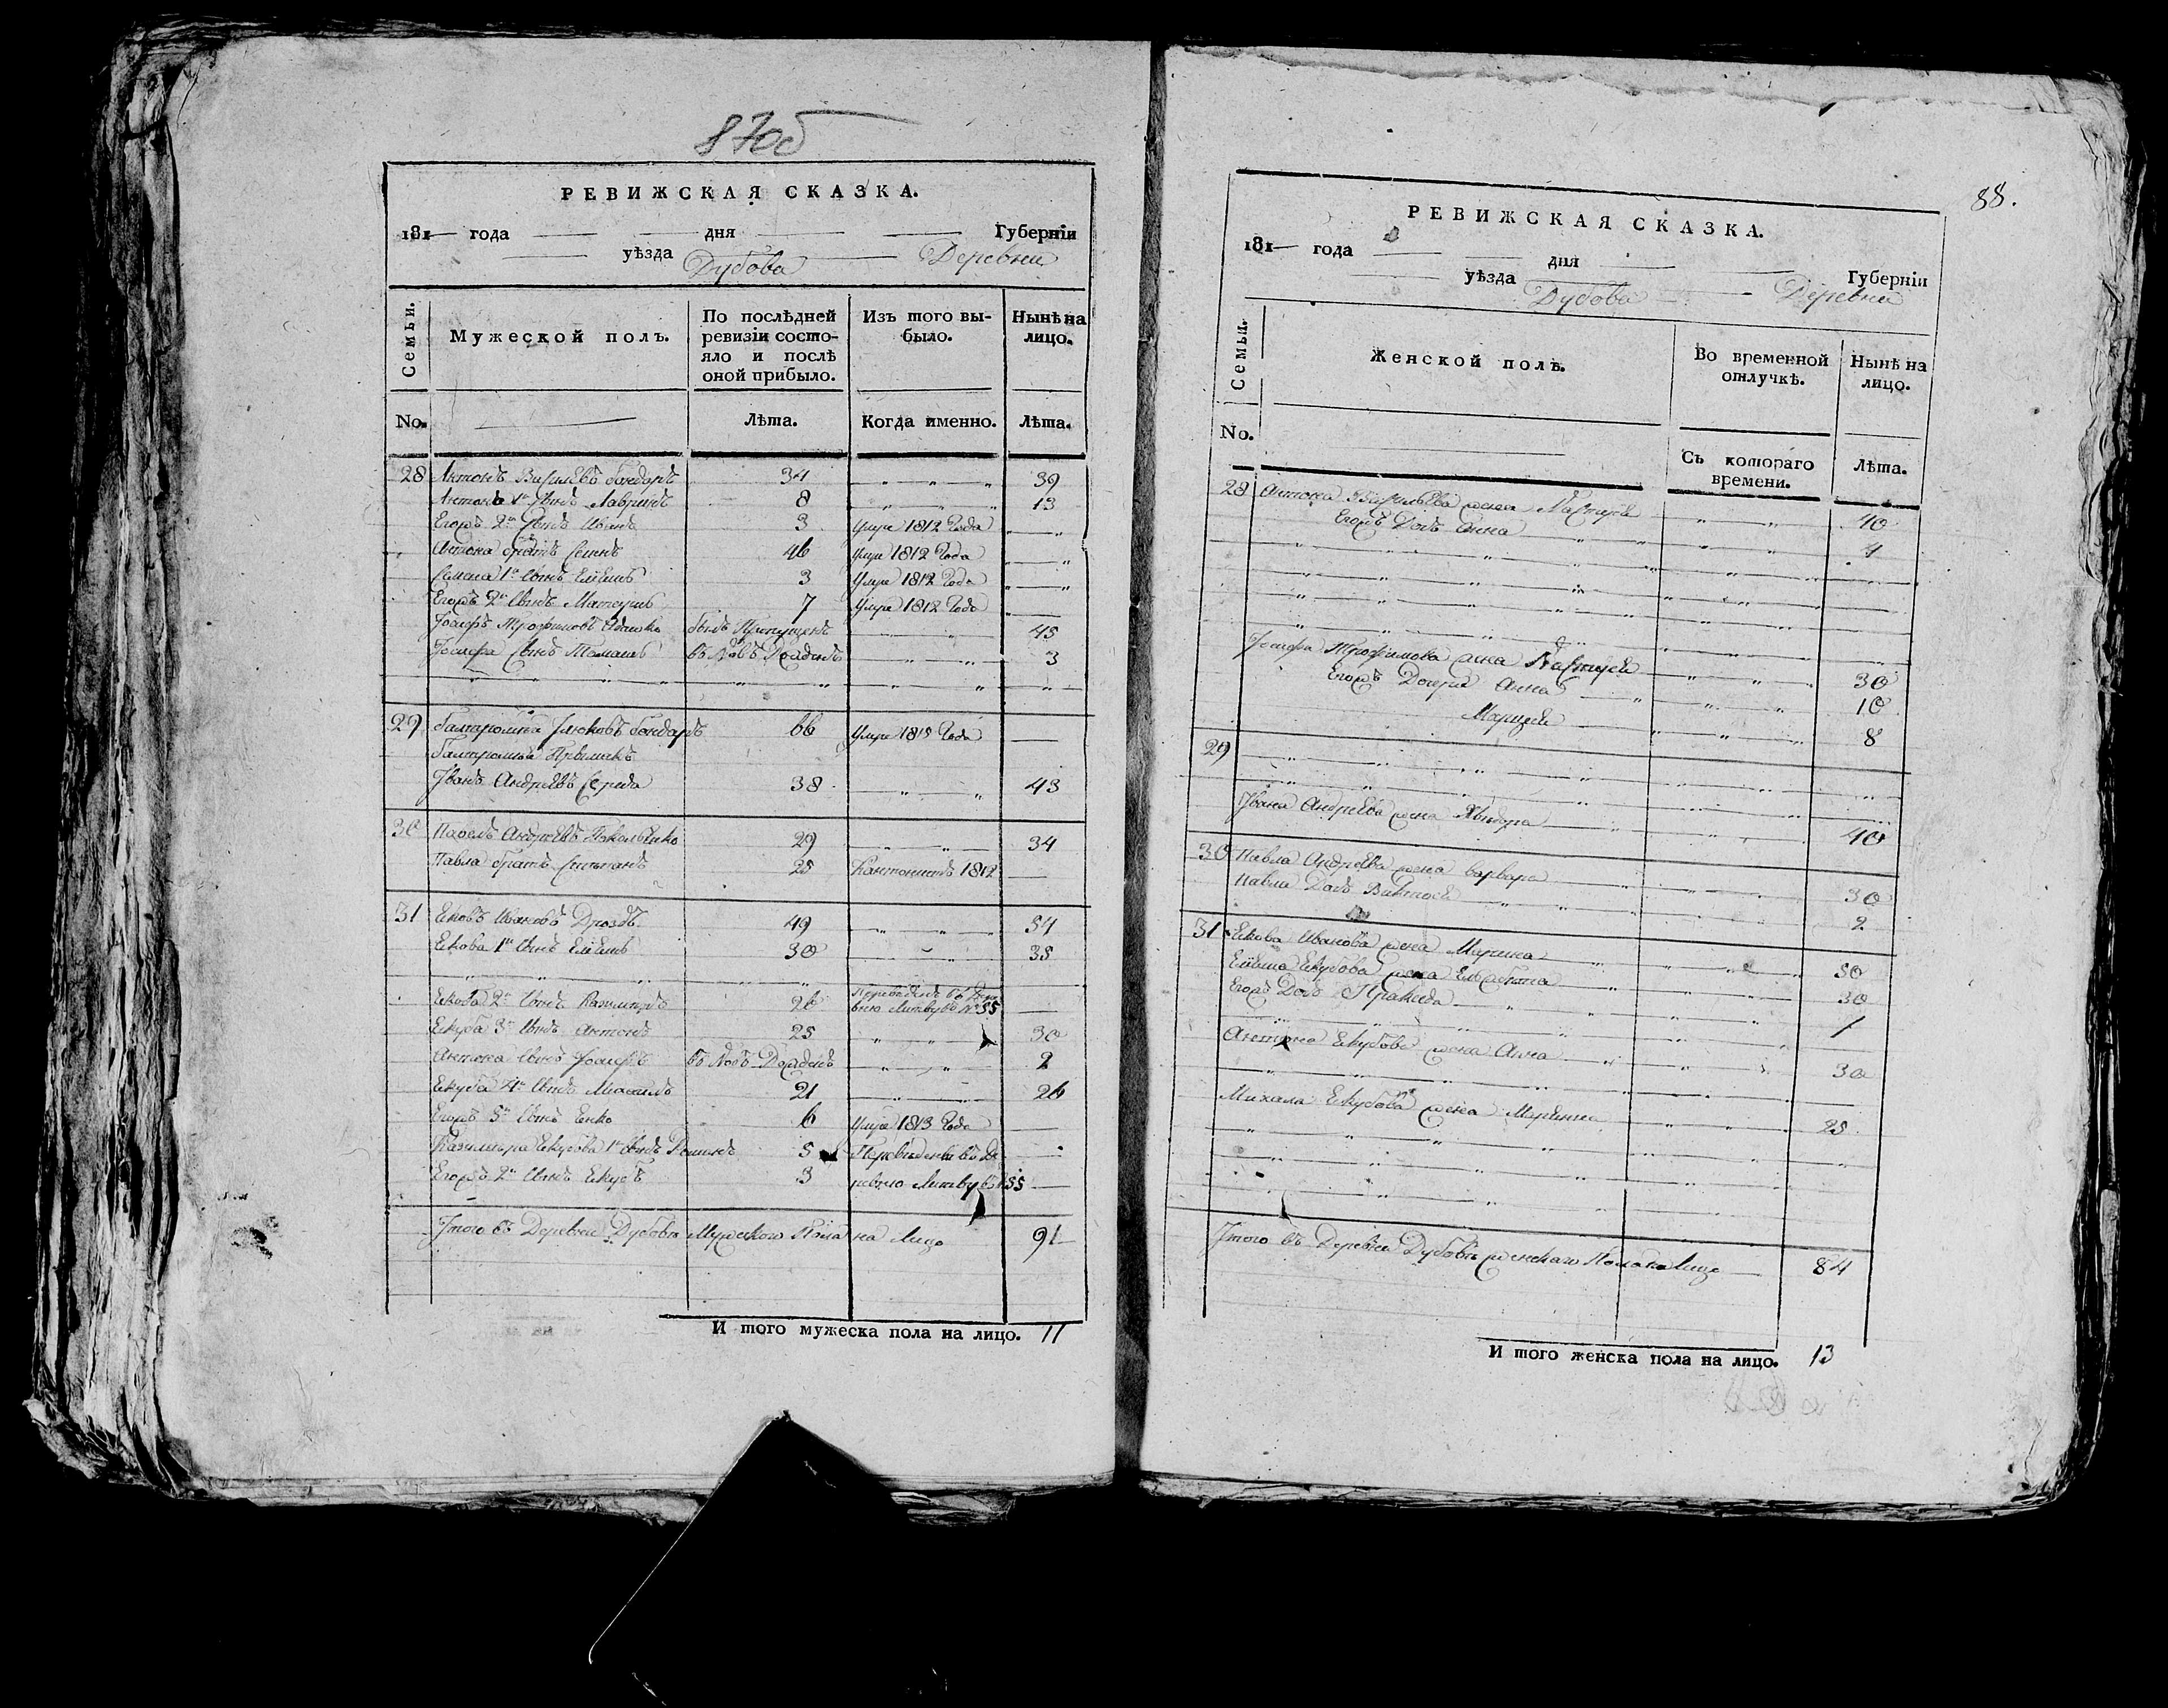 87об
РЕВИЖСКАЯ СКАЗКА.
181— года — — дня — — Губернїи
— уѣзда Дубова — Деревни
Семьи.
Мужеской полъ.
По послѣдней ревизїи состояло и послѣ оной прибыло.
Изъ того выбыло.
Нынѣ на лицо.
No.
Лѣта.
Когда именно.
Лѣта.
28 Антонъ Василевъ бондаръ 34 39
Антона 1й Сынъ Лавринъ 8 13
Егожъ 2й Сынъ Иванъ 3 Умре 1812 Года
Антона братъ Семенъ 46 Умре 1812 Года
Семена 1й Сынъ 3 Умре 1812 Года
Егожъ 2й Сынъ Матеушъ 7 Умре 1812 Года
Іосифъ Трофимовъ былъ Пропущенъ 45
Іосифа Сынъ Томашъ въ Новѣ Рожденъ 3
29 бондаръ 66 Умре 1815 Года
Іванъ Андреевъ Середа 38 43
30 Павелъ Андреевъ 29 34
Павла братъ Степанъ 25 Кантонистъ 1812
31 Ековъ Ивановъ Дроздъ 49 54
Екова 1й Сынъ 30 35
Екова 2й Сынъ Казимиръ 26 Переведенъ въ Деревню Литву №55
Екуба 3й Сынъ Антонъ 25 30
Антона Сынъ Іосифъ въ Новѣ Рожденъ 2
Екуба 4й Сынъ Михаилъ 21 26
Егожъ 5й Сынъ Енко 6 Умре 1813 Года
Казимира Екубова 1й Сынъ 5 Переведены въ Де
Егожъ 2й Сынъ Екубъ 3 ревню Литву №55
Ітого въ Деревни Дубовѣ Мужескаго Пола на Лицо 91
И того мужеска пола на лицо. 11
88.
РЕВИЖСКАЯ СКАЗКА.
181— года — — дня — — Губернїи
— уѣзда Дубова — Деревни
Семьи.
Женской полъ.
Во временной отлучкѣ.
Нынѣ на лицо.
No.
Съ котораго времени.
Лѣта.
28 Антона Василѣва жена Настуся 40
Егожъ Дочь Анна 4
Іосифа Трофимова жена Настуся 30
Егожъ Дочери Анна 10
Марцеля 8
29
Івана Андреева жена Хвидора 40
30 Павла Андреева жена варвара 30
Павла Дочь 2
31 Екова Иванова жена Марина 50
Екубова жена Елисабета 30
Егожъ Дочь 1
Антона Екубова жена Анна 30
Михала Екубова жена Марьяна 25
Ітого въ Деревни Дубовѣ женскаго Пола на Лицо 84
И того женска пола на лицо. 13